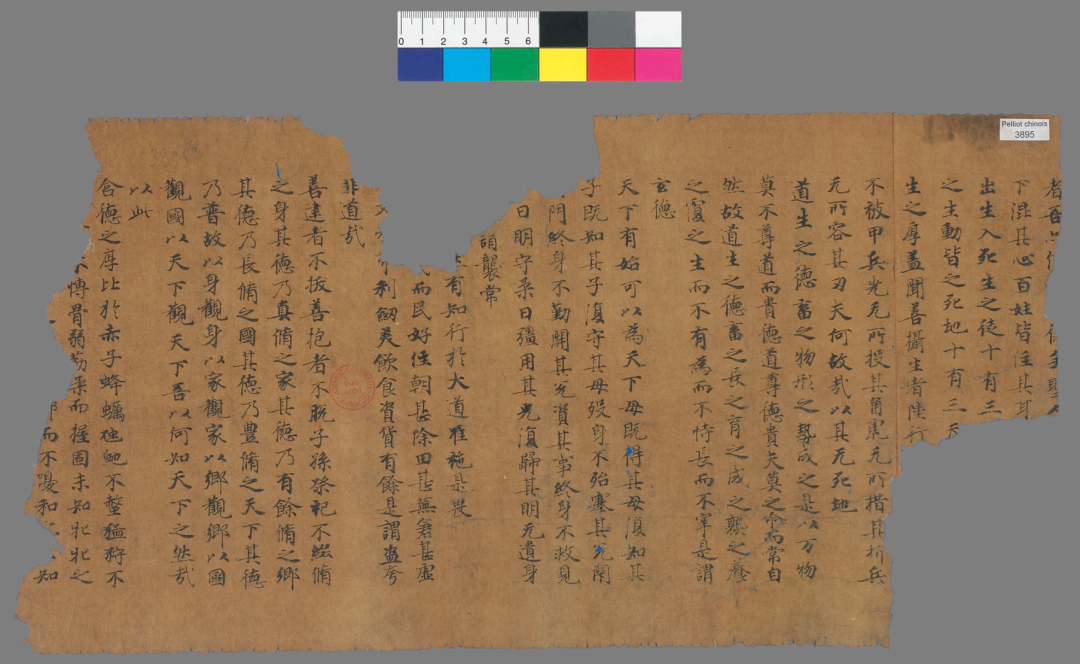 Pelliot chinois
3895
0 1 2 3 4 5 6
者
下混其心百姓皆注其耳
出生入死生之徒十有三
之生動皆之死地十有三夫
生之厚蓋聞善攝生者陸行
不被甲兵光无所投其角虎无所措其抓兵
无所容其刃夫何故哉以其无死地
道生之德畜之物形之勢成之是以万物
莫不尊道而貴德道尊德貴夫莫之命而常自
然故道生之德畜之長之育之成之熟之養
之覆之生而不有為而不恃長而不宰是謂
玄德
天下有始可以為天下母既得其母復知其
子既知其子復守其母歿身不殆塞其兌閉
門終身不勤開其兌濟其事終身不救見
曰明守柔曰彊用其光復歸其明无遺身
謂襲常
有知行於大道唯施是畏
而民好俓朝甚除田甚蕪倉甚虛
利劒猒飲食資貨有餘是謂盜夸
非道哉
善建者不拔善抱者不脫子孫祭祀不綴脩
之身其德乃真脩之家其德乃有餘脩之鄉
其德乃長脩之國其德乃豐脩之天下其德
乃普故以身觀身以家觀家以鄉觀鄉以國
觀國以天下觀天下吾以何知天下之然哉
以此
含德之厚比於赤子蜂蠆虺虵不螫猛狩不
愽骨弱筋柔而握固未知牝牝之
而不嗄和 知